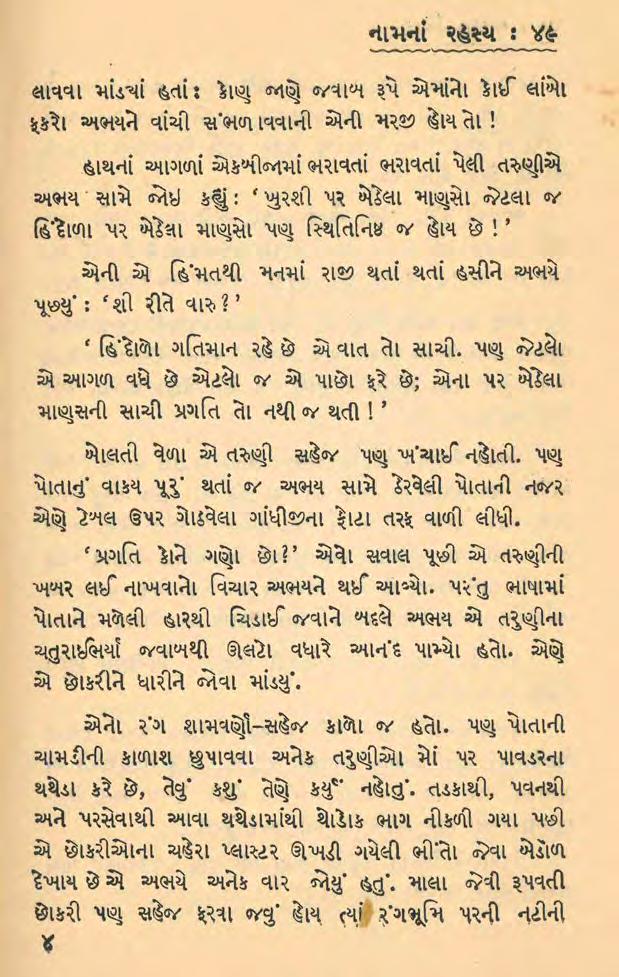 નામનાં રહસ્ય : ૪૯
લાવવા માંડ્યાં હતાં : કોણ જાણે જવાબ રૂપે એમાંનો કોઈ લાંબો
ફકરો અભયને વાંચી સંભળાવવાની એની મરજી હોય તો !
હાથનાં આગળાં એકબીજામાં ભરાવતાં ભરાવતાં પેલી તરુણીએ
અભય સામે જોઇ કહ્યું : ‘ ખુરશી પર બેઠેલા માણસો જેટલા જ
હિંદોળા પર બેઠેલા માણસો પણ સ્થિતિનિષ્ઠ જ હોય છે ! ’
એની એ હિંમતથી મનમાં રાજી થતાં થતાં હસીને અભયે
પૂછ્યું : ‘શી રીતે વારુ ? ’
‘ હિંદોળો ગતિમાન રહે છે એ વાત તો સાચી. પણ જેટલો
એ આગળ વધે છે એટલો જ એ પાછો ફરે છે; એના પર બેઠેલા
માણસની સાચી પ્રગતિ તો નથી જ થતી ! ’
બોલતી વેળા એ તરુણી સહેજ પણ ખંચાઈ નહોતી. પણ
પોતાનું વાક્ય પૂરું થતાં જ અભય સામે ઠેરવેલી પોતાની નજર
એણે ટેબલ ઉપર ગોઠવેલા ગાંધીજીના ફોટા તરફ વાળી લીધી.
‘ પ્રગતિ કોને ગણો છો?’ એવો સવાલ પૂછી એ તરુણીની
ખબર લઈ નાખવાનો વિચાર અભયને થઈ આવ્યો. પરંતુ ભાષામાં
પોતાને મળેલી હારથી ચિડાઈ જવાને બદલે અભય એ તરુણીના
ચતુરાઈભર્યાં જવાબથી ઊલટો વધારે આનંદ પામ્યો હતો. એણે
એ છોકરીને ધારીને જોવા માંડ્યું.
એનો રંગ શામવર્ણો–સહેજ કાળો જ હતો. પણ પોતાની
ચામડીની કાળાશ છુપાવવા અનેક તરુણીઓ મોં પર પાવડરના
થથેડા કરે છે, તેવું કશું તેણે કર્યું નહોતું. તડકાથી, પવનથી
અને પરસેવાથી આવા થથેડામાંથી થોડોક ભાગ નીકળી ગયા પછી
એ છોકરીઓના ચહેરા પ્લાસ્ટર ઊખડી ગયેલી ભીંતો જેવા બેડોળ
દેખાય છે એ અભયે અનેક વાર જોયું હતું. માલા જેવી રૂપવતી
છોકરી પણ સહેજ ફરવા જવું હોય ત્યાં રંગભૂમિ પરની નટીની
૪